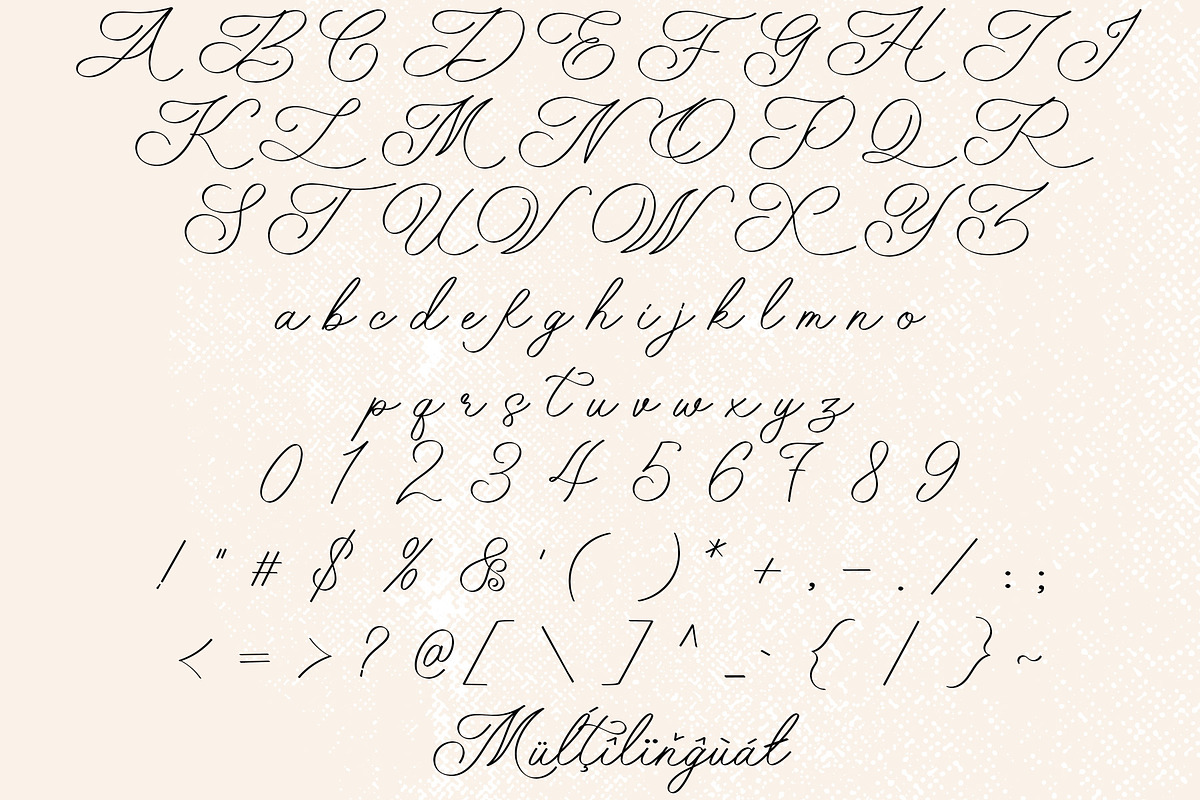 A B C D E F G H I J
K L M N O P Q R
S T U V W X Y Z
a b c d e f g h i j k l m n o
p q r s t u v w x y z
0 1 2 3 4 5 6 7 8 9
! " # $ % & ' ( ) * + , - . / : ;
< = > ? @ [ \ ] ^ _ ` { | } ~